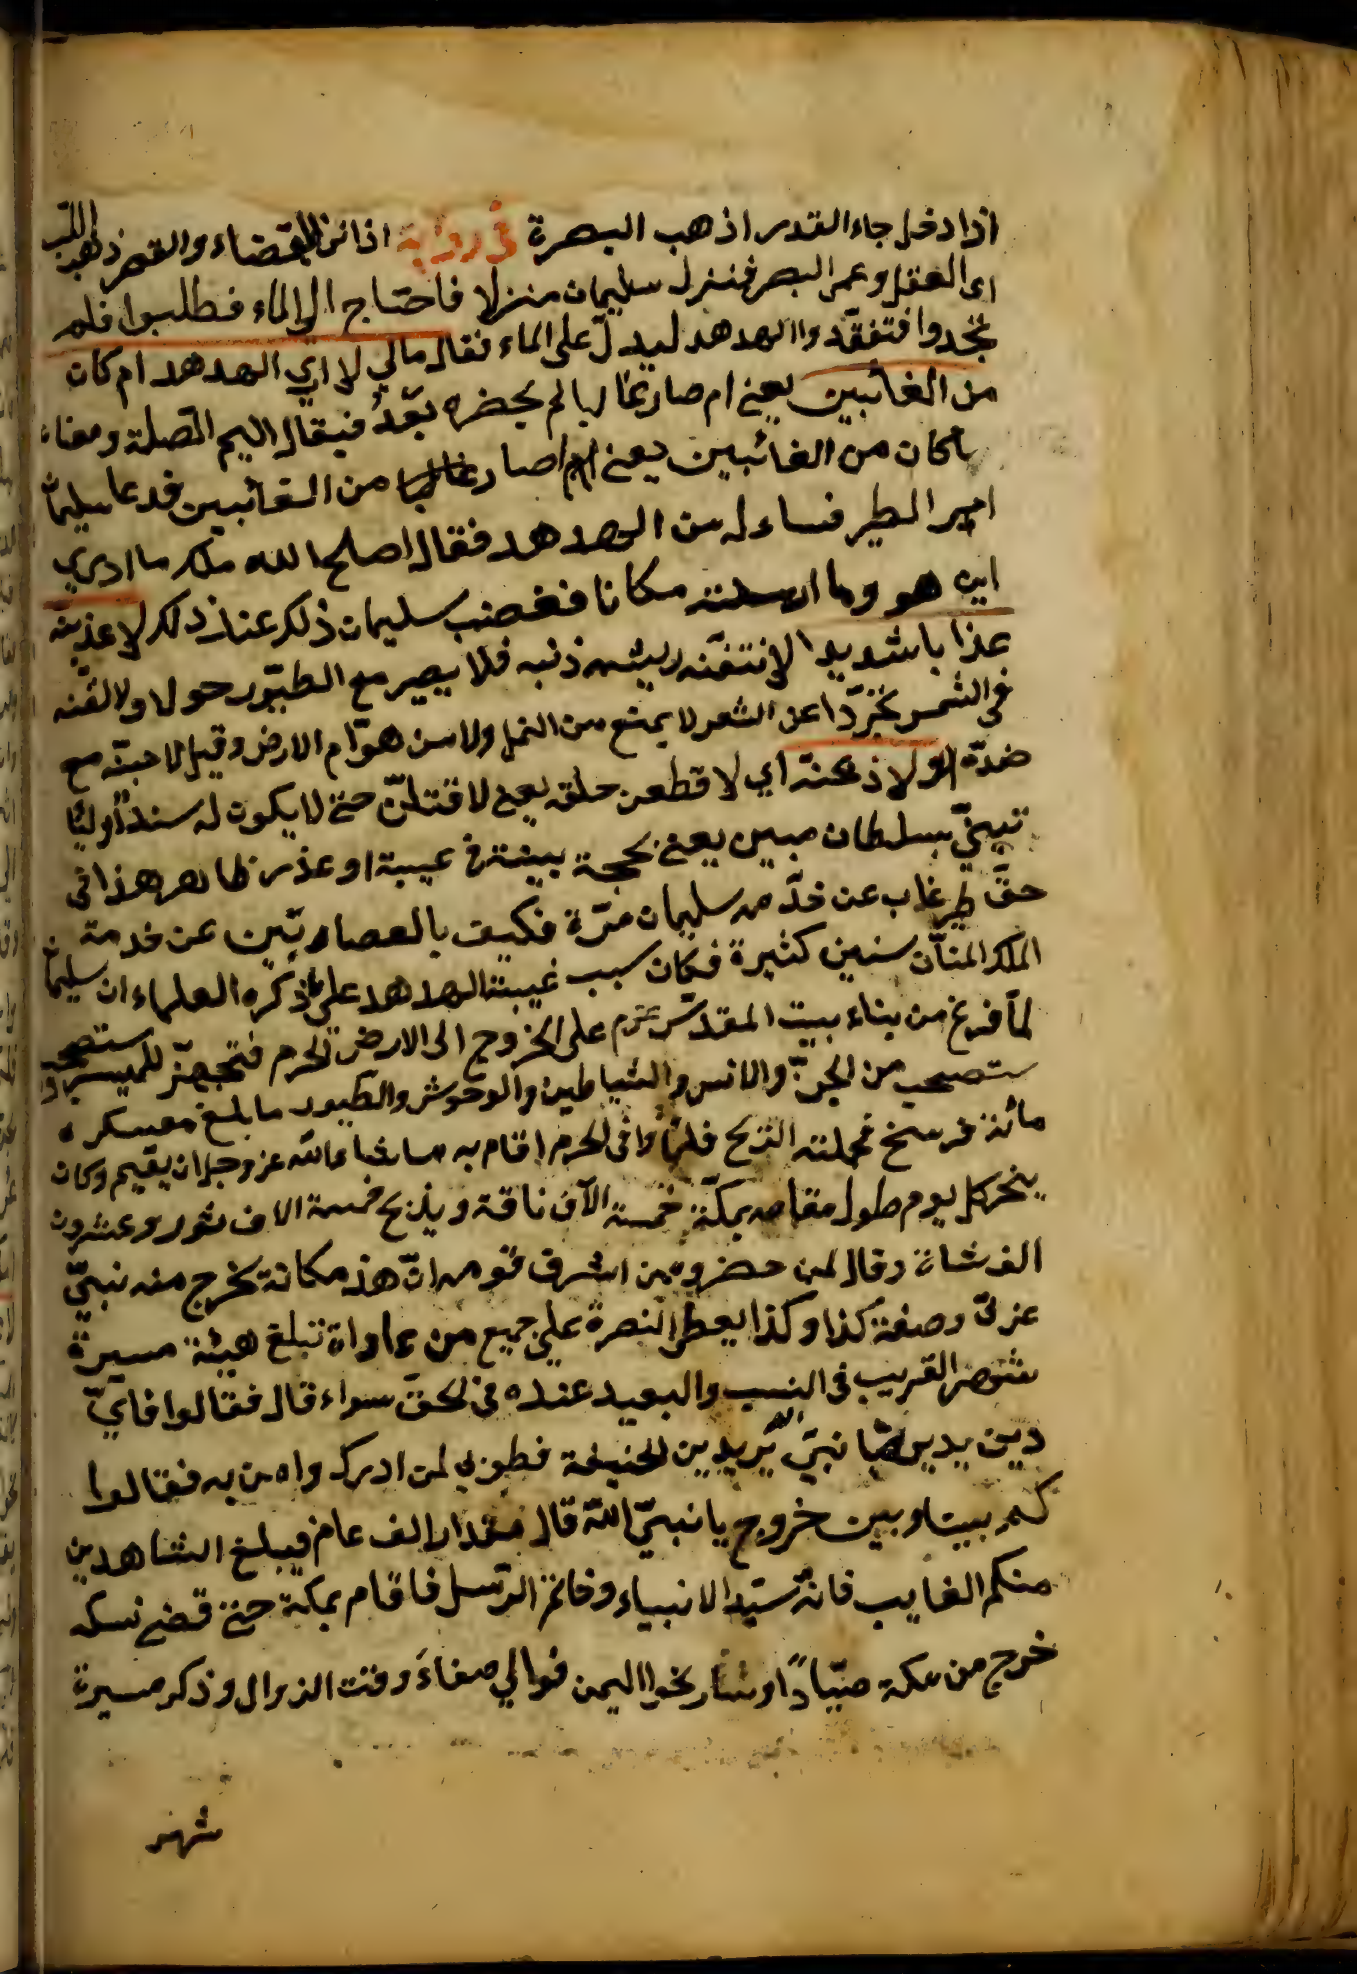 اذا دخل جاء القدر اذهب البصرة في رواية اذا نزل القضاء والقدر ذهب اللب
اى العقل وعمى البصر فنزل سليمان منزلا فاحتاج الى الماء فطلبوا فلم
يجدوا فتفقدوا الهدهد ليدلّ على الماء فقال مالي لا ارى الهدهد ام كان
من الغائبين يعني ام صار غايبا لم يحضره بعدُ فيقال الميم الصلة ومعناه
ما كان من الغائبين يعني ام صار غايبا من الغائبين فدعا سليمان
امير الطير فساءله من الهدهد فقال اصلح الله ملك ما ادري
اين هو وما ارسلته مكانا فغضب سليمان ذلك عند ذلك لاعذبنه
عذابا شديدا لانتفنّه ريشه ذنبه فلا يصير مع الطيّور حولا ولالقنه
في الشمس مجرّدا عن الشعر لا يمتنع من النمل ولا من هوّام الارض وقيل لاحبنّه مع
ضدّه او لاذبحنه اي لاقطعن حلقه يعني لاقتلنّ حتى لا يكون له سندا او لئا
تينّي بسلطان مبين يعني بحجة بينة في غيبة او عذر ظاهر هذا في
حقّ طير غاب عن خدّمه سليمان مرّة فكيف بالعصاة ربّين عن خدمة
الملك المنّان سنين كثيرة فكان سبب غيبته الهدهد على ما ذكره العلماء ان سليمان
لمّا فرغ من بناء بيت المقدّس عزم على الخروج الى الارض الحرم فتجهّز للميسر واستصحب
ستصحب من الجنّ والانس والشياطين والوحوش والطيور ما بلغ معسكره
مائة فرسخ فحملته الريح فلمّا وافى الحرم اقام به ما شاء الله عز وجل ان يقيم وكان
ينحر كل يوم طول مقامه بمكّة خمسة الآف ناقة ويذبح خمسة الاف ثور وعشرون
الف شاة وقال لمن حضر ومن اشرق قومه انّ هذ مكانة يخرج منه نبيّ
عزىّ وصفة كذا وكذا يعطى النصرة على جميع من عاداة تبلغ هيئة مسيرة
شهر القريب فى النسب والبعيد عنده فى الحقّ سواء قال فقالوا فايّ
دين يدين يا نبيّ الله يريدين الحنيفة فطوبى لمن ادرك وامن به فقالوا
كم بيننا وبين خروج يا نبيّ الله قال مقدار الف عام فيبلغ الشاهدين
منكم الغايب فانه سيّد الانبياء وخاتم الرّسل فاقام بمكة حتى قضى نسكه
خرج من مكة صبّاحًا وسار نحو اليمن فوالي صنعاءَ وقت الزوال وذكر مسيرة
شهر